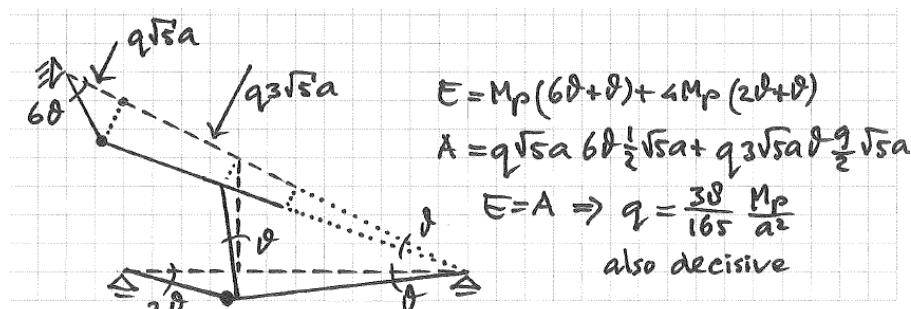 q√5a
q3√5a
6ϑ
E = Mp(6ϑ+ϑ) + 4Mp(2ϑ+ϑ)
A = q√5a 6ϑ ½√5a + q3√5aϑ 9/2 √5a
E = A ⇒ q = 38/165 Mp/a²
also decisive
ϑ
ϑ
ϑ